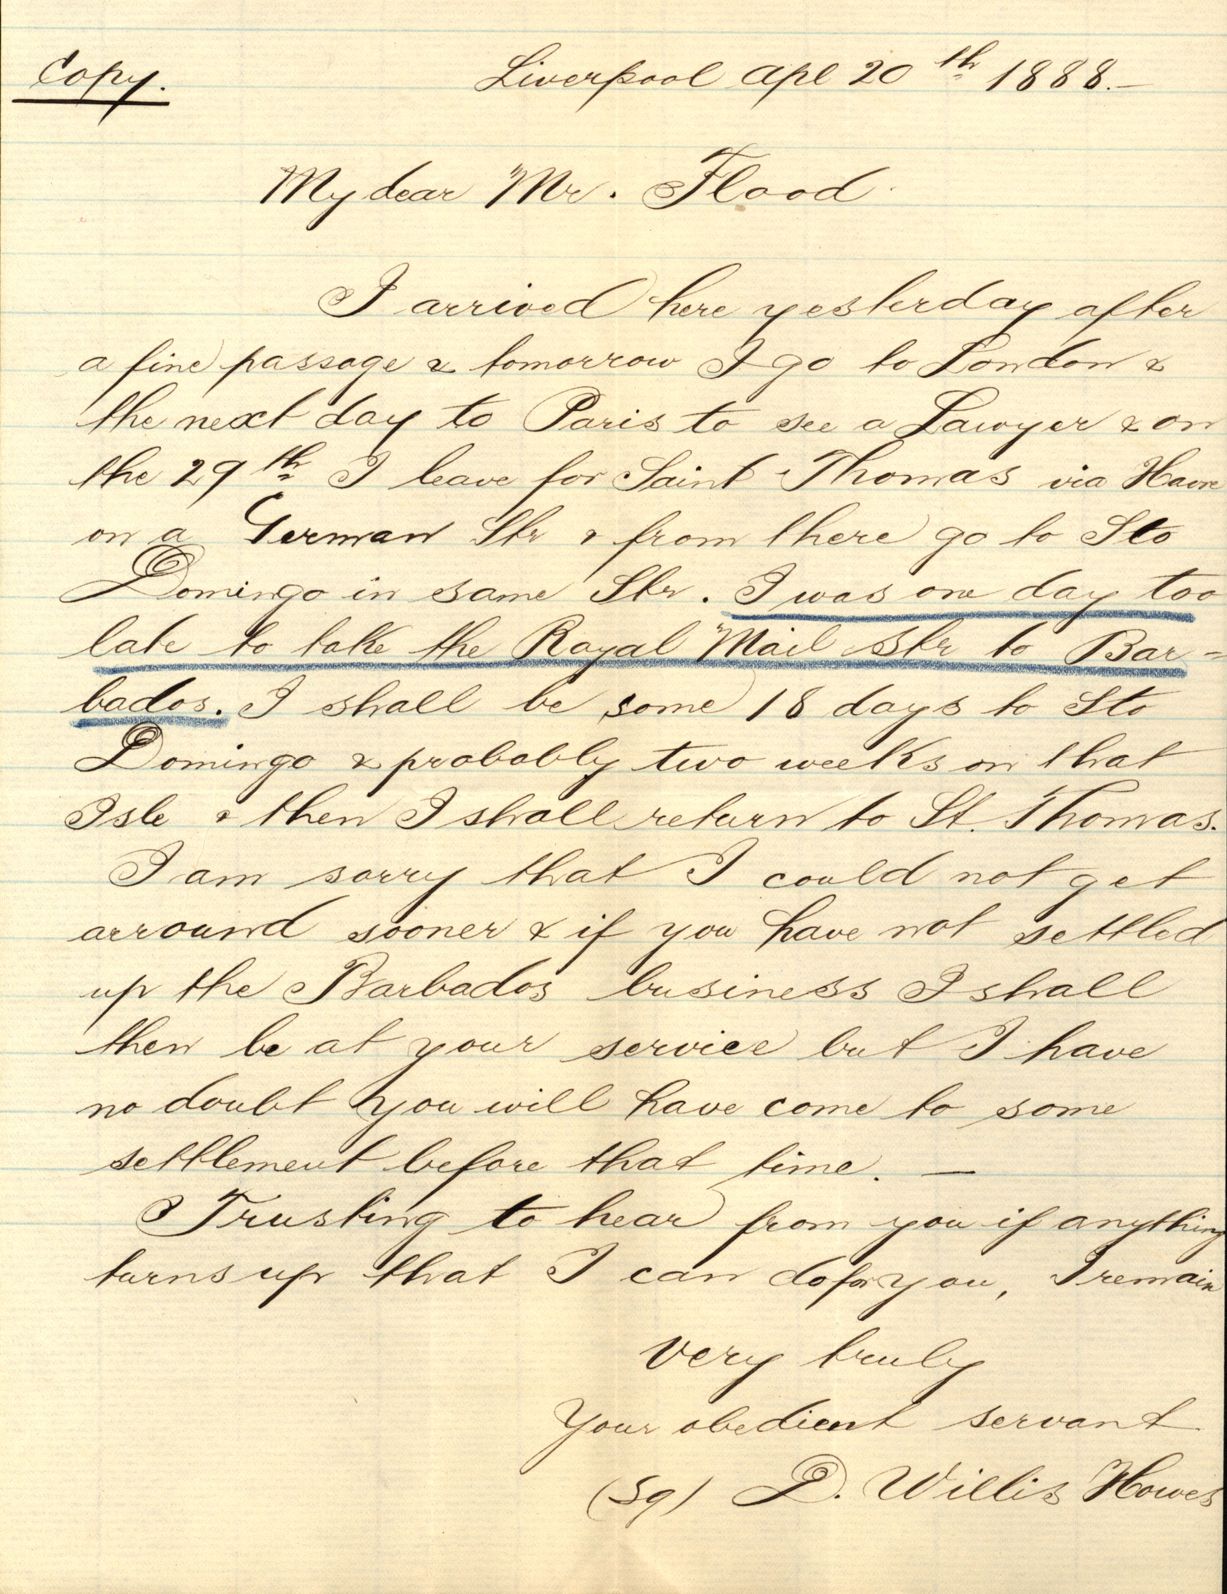 Copy. Liverpool Apl 20th 1888.—
My dear Mr. Flood
I arrived here yesterday after
a fine passage & tomorrow I go to London &
the next day to Paris to see a Lawyer & on
the 29th I leave for Saint Thomas via Havre
on a German Str & from there go to Sto
Domingo in same Str. I was one day too
late to take the Royal Mail Str to Bar-
bados. I shall be some 18 days to Sto
Domingo & probably two weeks on that
Isle & then I shall return to St. Thomas.
I am sorry that I could not get
arround sooner & if you have not settled
up the Barbados business I shall
then be at your service but I have
no doubt you will have come to some
settlement before that time. —
Trusting to hear from you if anything
turns up that I can do for you, I remain
very truly
Your obedient servant
(Sg) D. Willis Howes